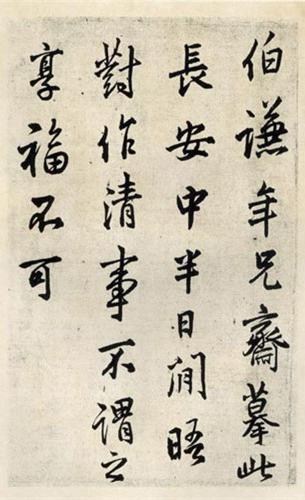 伯謙年兄齋摹此
長安中半日閒晤
對作清事不謂之
享福不可